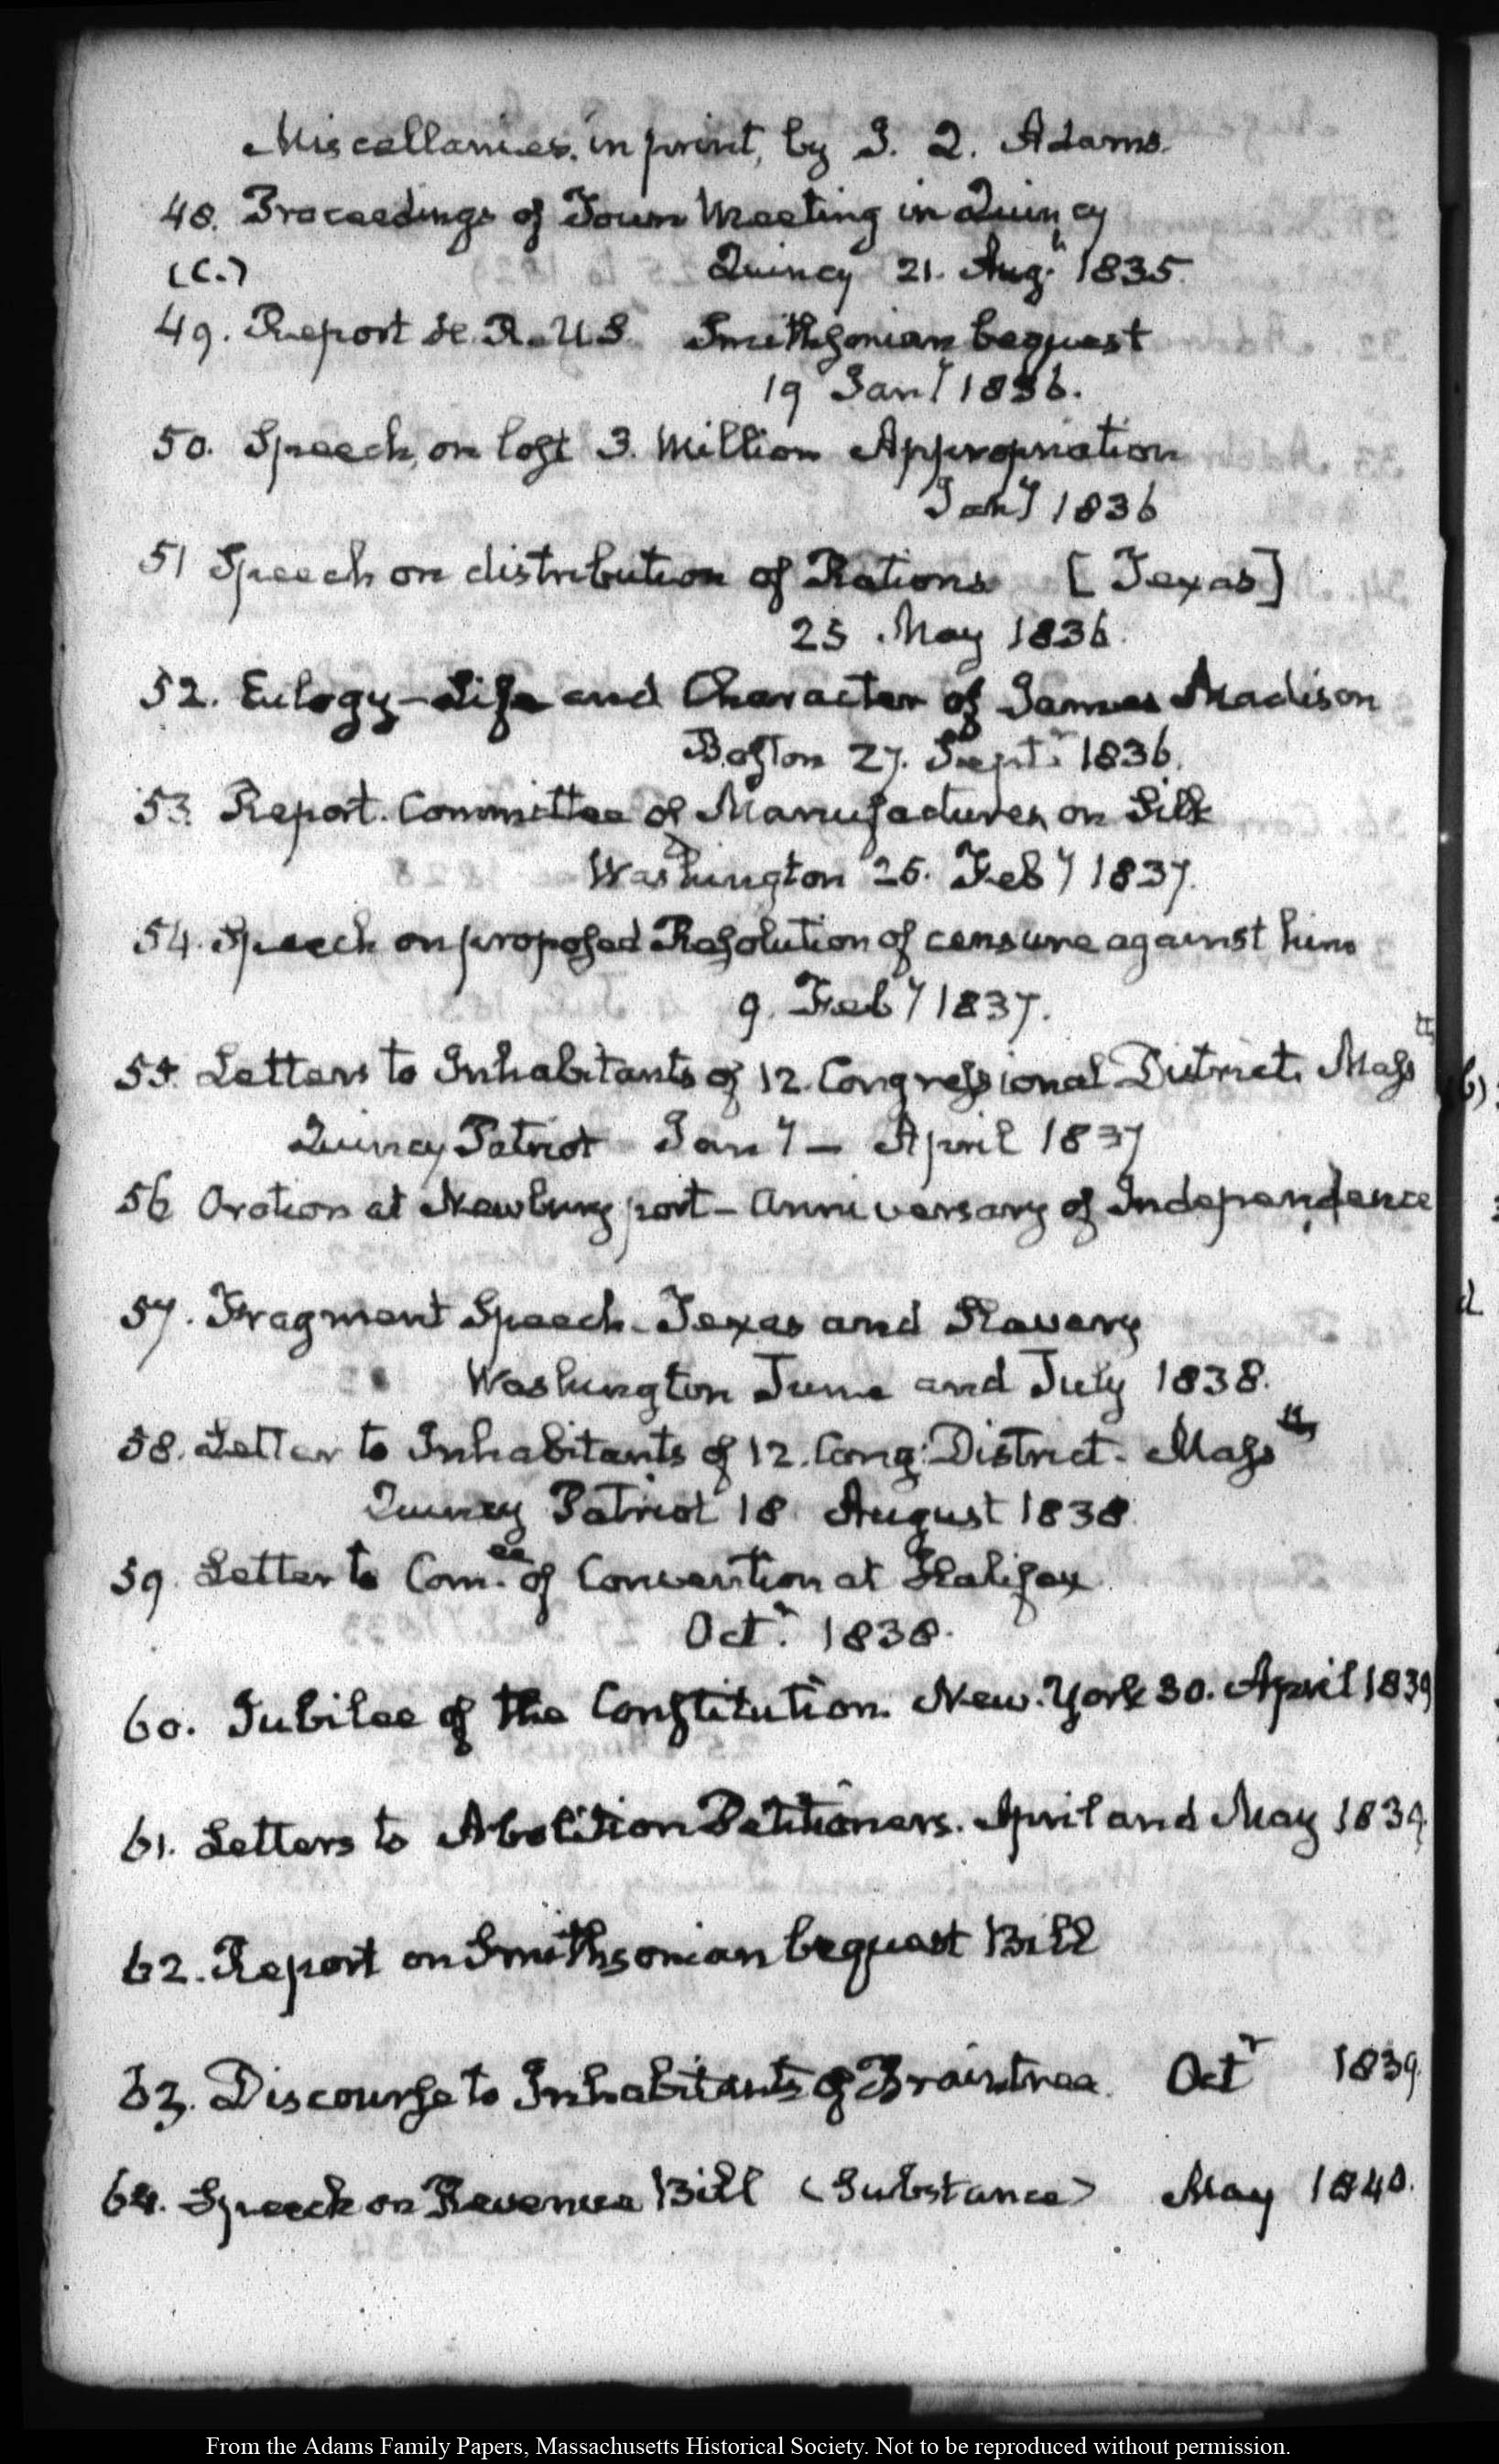 Miscellanies in print, by J. Q. Adams.
48. Proceedings of Town Meeting in Quincy
(C.) Quincy 21. Aug.t 1835.
49. Report H. R. U.S. Smithsonian bequest
19 Jany 1836.
50. Speech, on lost 3. Million Appropriation
Jany 1836
51 Speech on distribution of Rations [Texas]
25 May 1836.
52. Eulogy - Life and Character of James Madison
Boston 27. Septr 1836.
53. Report. Committee of Manufactures, on Silk
Washington 25. Feby 1837.
54. Speech on proposed Resolution of censure against him
9. Feby 1837.
55. Letters to Inhabitants of 12. Congressional District. Masstts
Quincy Patriot Jany - April 1837
56 Oration at Newburyport - Anniversary of Independence
57. Fragment Speech - Texas and Slavery
Washington June and July 1838.
58. Letter to Inhabitants of 12. Cong: District. Masstts
Quincy Patriot 18 August 1838.
59. Letter to Com.ee of Convention at Halifax
Oct.r 1838.
60. Jubilee of the Constitution. New-York 30. April 1839
61. Letters to Abolition Petitioners. April and May 1839.
62. Report on Smithsonian bequest Bill
63. Discourse to Inhabitants of Braintree. Octr 1839.
64. Speech on Revenue Bill (Substance) May 1840.
From the Adams Family Papers, Massachusetts Historical Society. Not to be reproduced without permission.